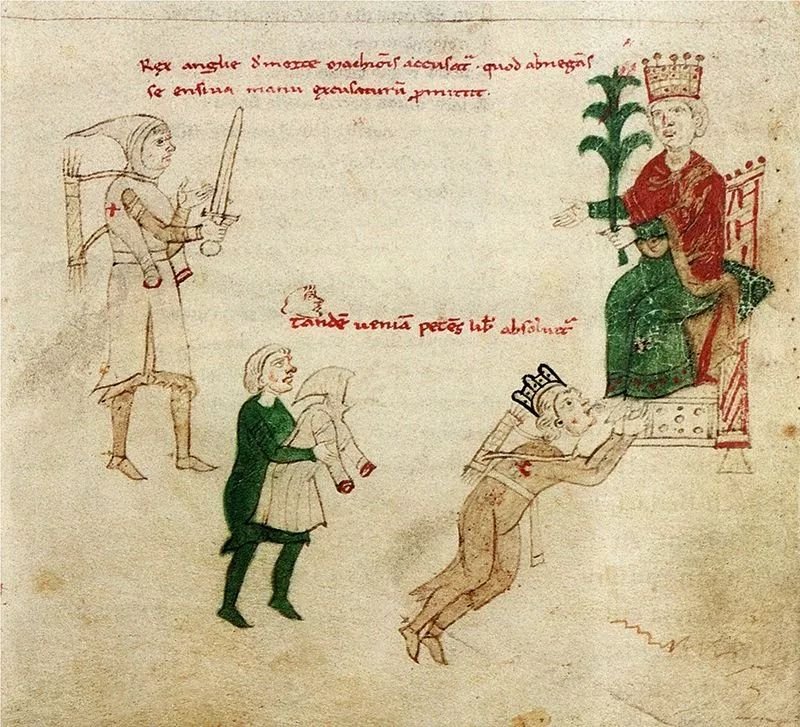 Rex anglie d morte marchiōis accusat᷑. quod abnegās
se ensiua manu excusaturū ꝓmittit.
tandē ueniā petēs lib̄ absoluit᷑